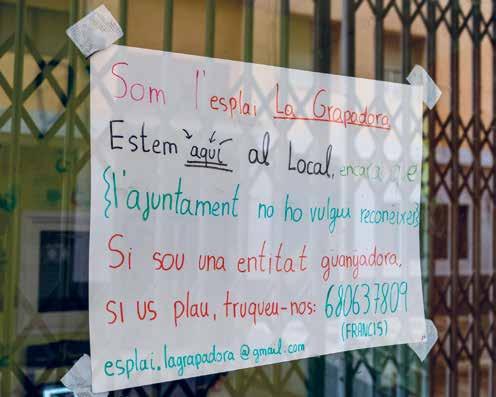 Som l'esplai La Grapadora
Estem aquí al Local, encara que
{l'ajuntament no ho vulgui reconèixer}
Si sou una entitat guanyadora,
si us plau, truqueu-nos: 680637809
(FRANCIS)
esplai.lagrapadora@gmail.com